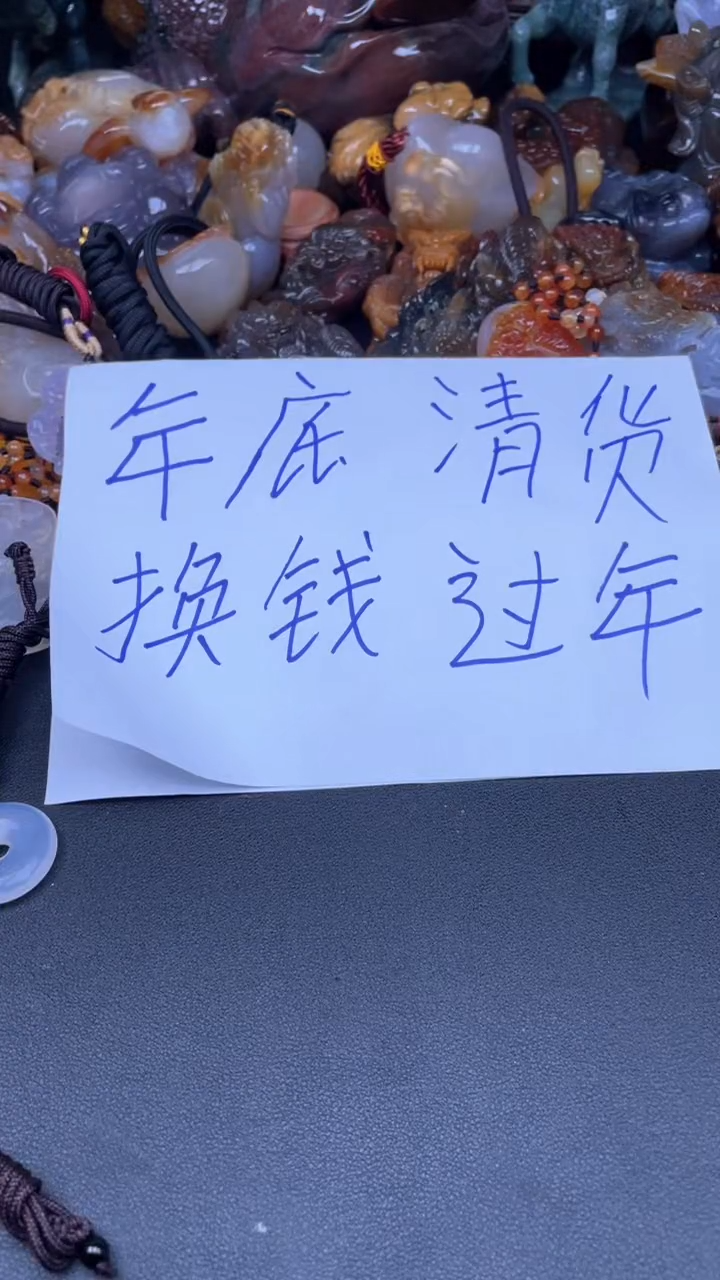 年底 清货
换钱 过年